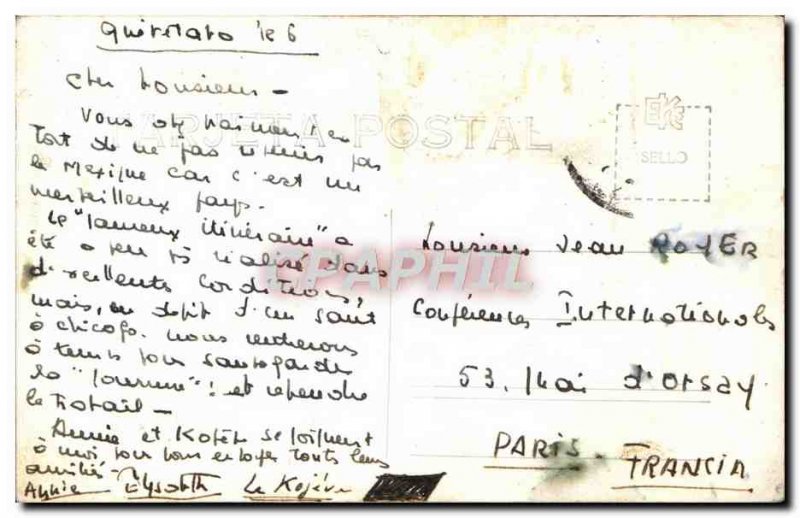 Querétaro le 6
Cher Monsieur -
TARJETA POSTAL
EKC
SELLO
Vous avez vraiment eu
tort de ne pas venir pas
le Mexique car c'est un
merveilleux pays.
Le "fameux itinéraire" a
été à peu près réalisé dans
d'excellentes conditions,
mais, en dépit d'un saut
à chicago. nous rentrerons
à temps pour sauvegarder
la "Tournée"! et reprendre
le Travail -
Annie et se joignent
à moi pour vous envoyer toutes leurs
amitiés -
Annie Elysabeth Le Kojève
Monsieur Jean ROYER
Conférences Internationales
53. Quai d'Orsay
PARIS.
FRANCIA
CPAPHIL